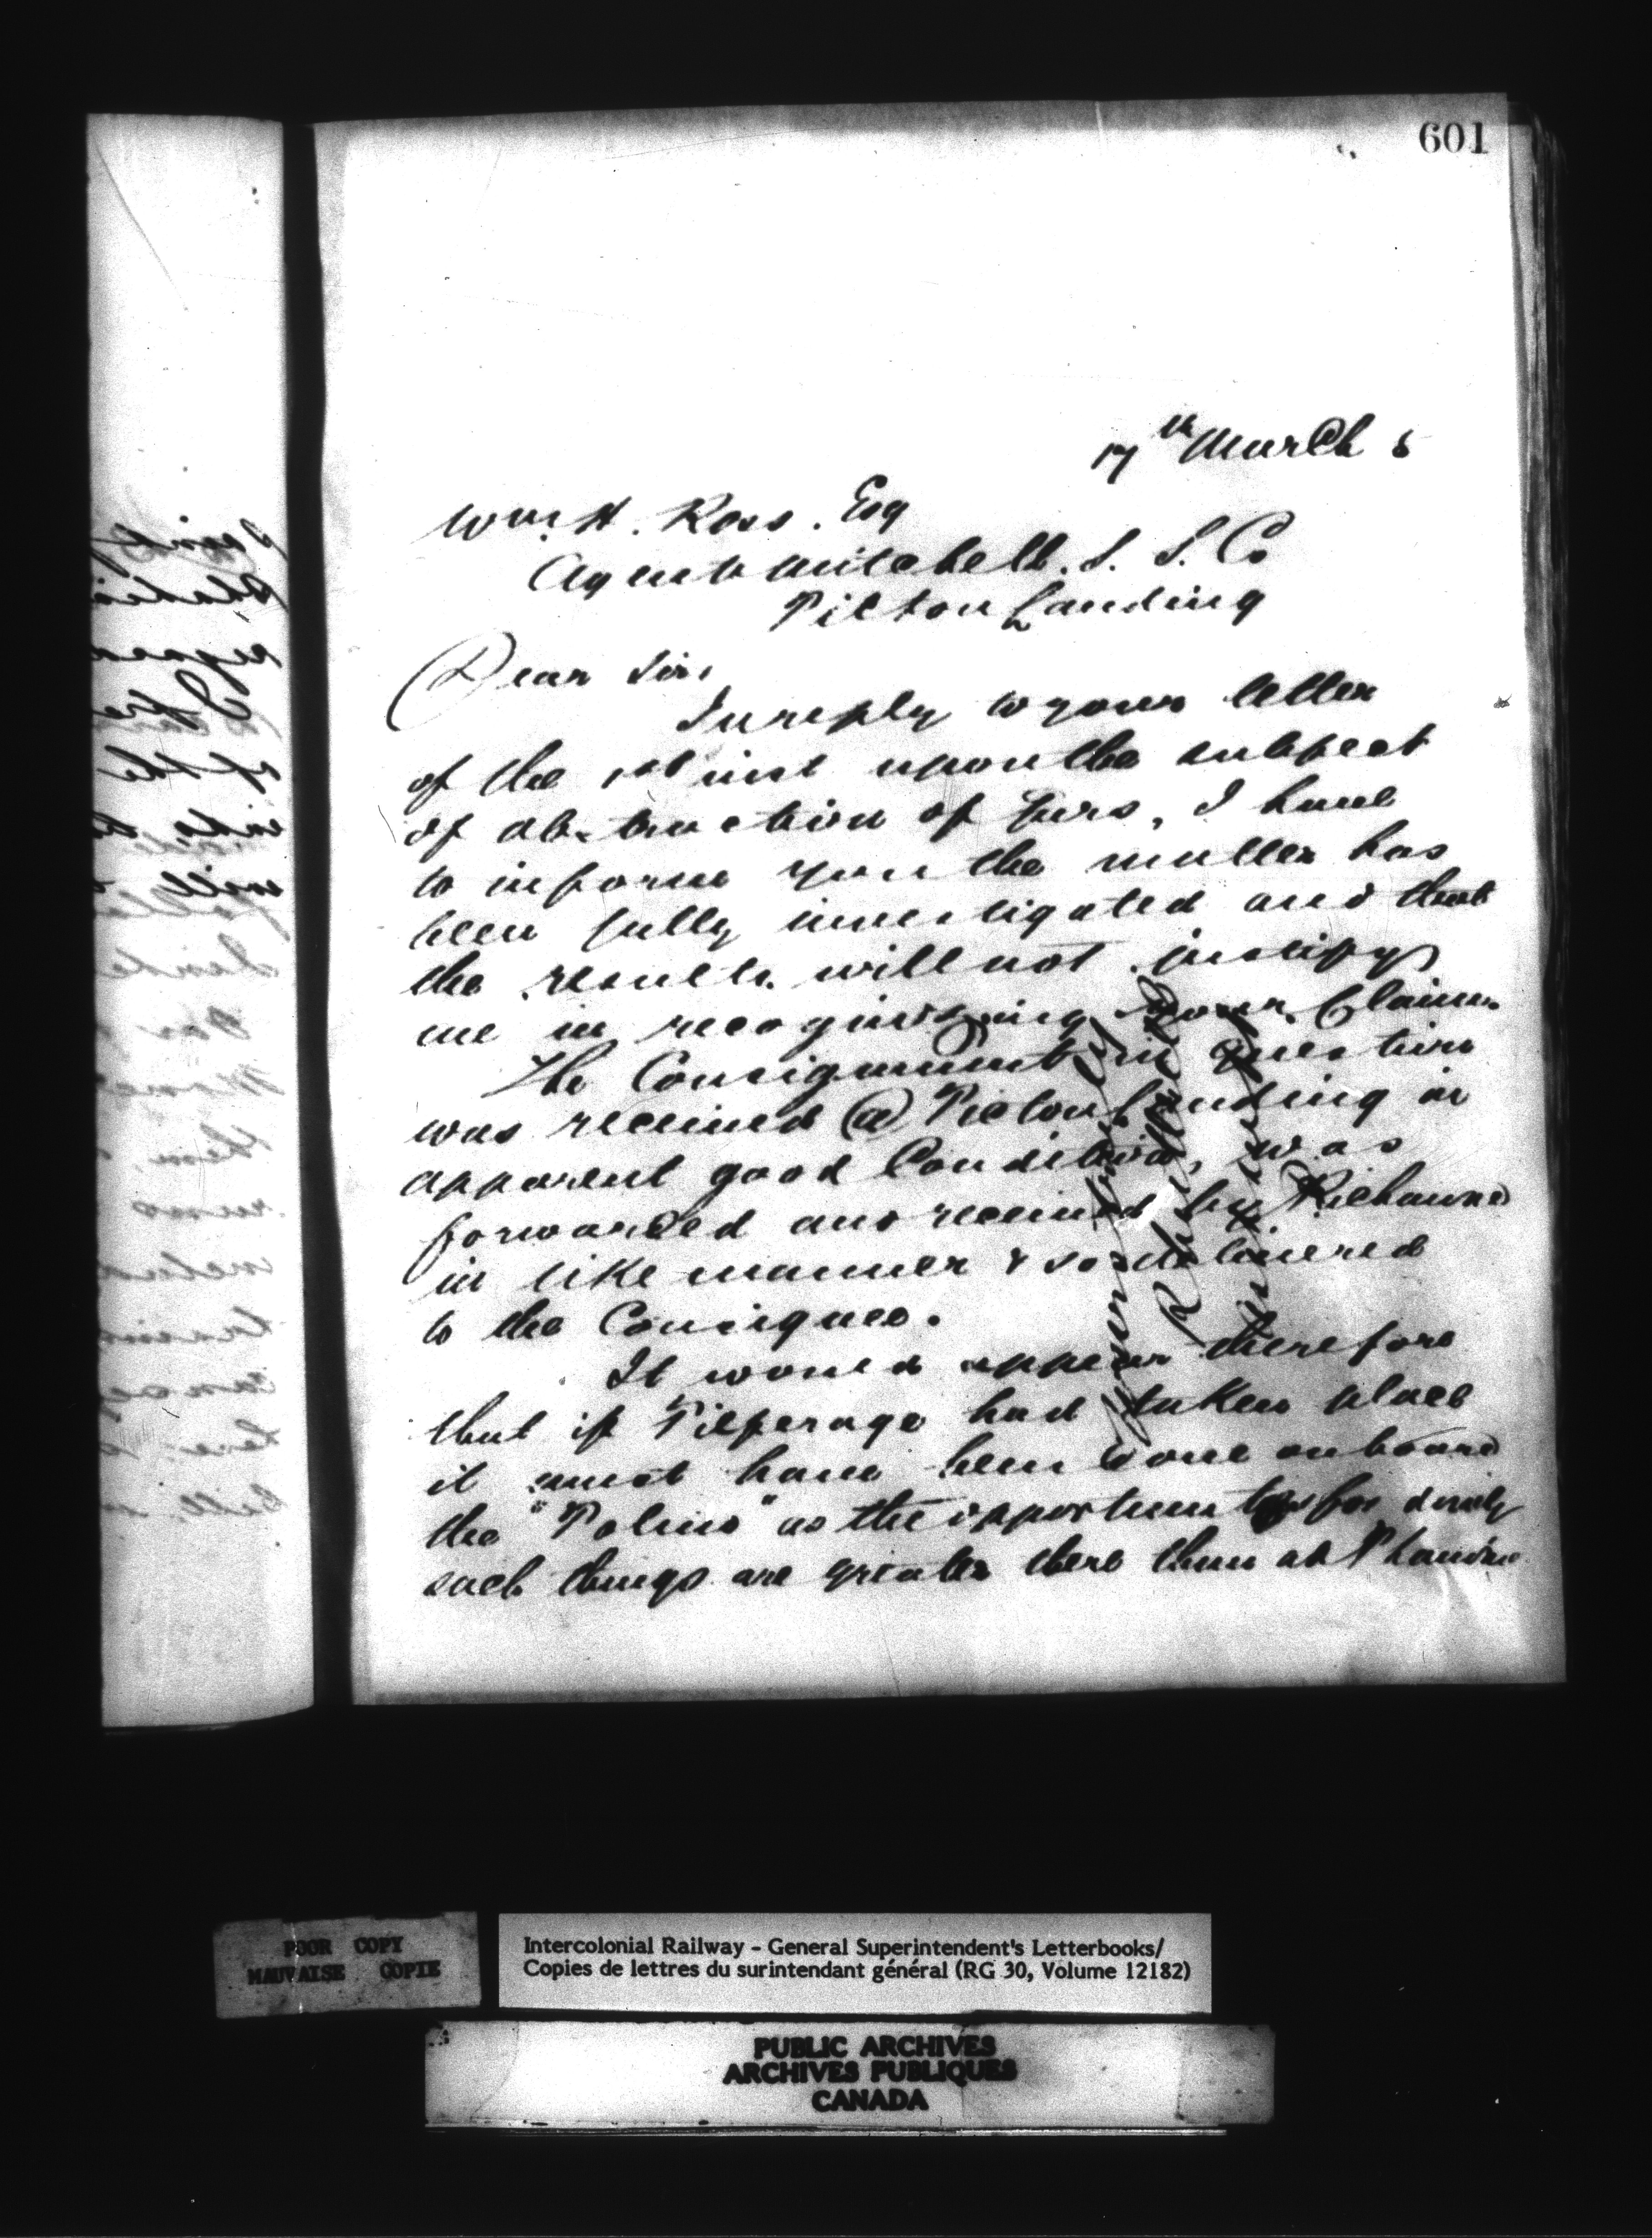 601
17th March 5
Wm. H. Ross. Esq
Agent Mitchell. S. S. Co
Pictou Landing
Dear Sir,
In reply to your letter
of the 1st inst upon the subject
of abstraction of furs, I have
to inform you the matter has
been fully investigated and that
the results will not justify
me in recognizing your Claim.
The Consignment in question
was received @ Pictou Landing in
apparent good Condition, was
forwarded and received by Richmond
in like manner & so delivered
to the Consignee.
It would appear therefore
that if Pilferage had taken place
it must have been done on board
the " " as the opportunity for doing
such things are greater there than at P Landing
Yours truly
POOR COPY
MAUVAISE COPIE
Intercolonial Railway - General Superintendent's Letterbooks/
Copies de lettres du surintendant général (RG 30, Volume 12182)
PUBLIC ARCHIVES
ARCHIVES PUBLIQUES
CANADA